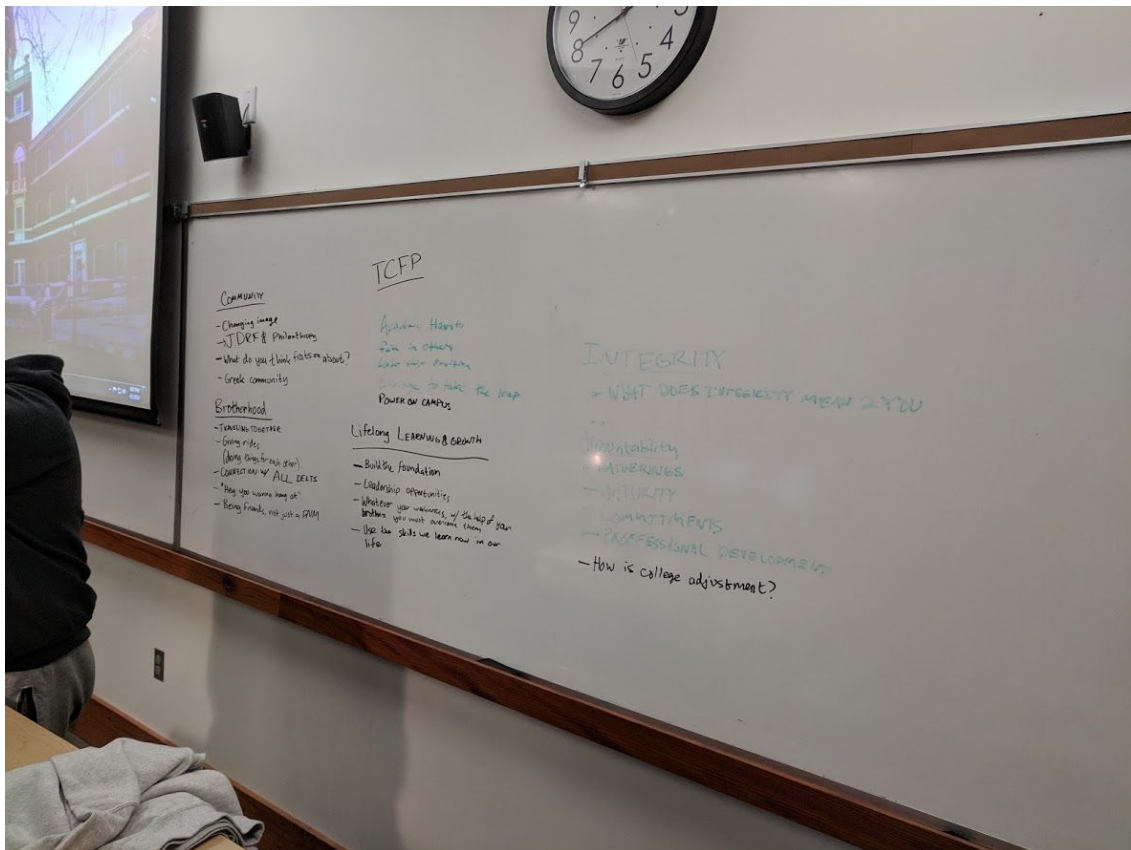 9 8 7 6 5 4 3
TCFP
COMMUNITY
- Changing image
→ JDRF & Philanthropy
- What do you think frats are about?
- Greek community
Brotherhood
- TRAVELING TOGETHER
- Giving rides
(doing things for each other)
- CONNECTION w/ ALL DELTS
- "Hey you wanna hang out"
- Being friends, not just a
Academic
Faith in others
to take the leap
POWER ON CAMPUS
Lifelong LEARNING & GROWTH
- Build the foundation
- Leadership opportunities
- Whatever your weaknesses, w/ the help of your
brothers you must overcome them
- Use the skills we learn now in our
life
INTEGRITY
- WHAT DOES INTEGRITY MEAN 2 YOU
Accountability
- GATHERINGS
- MATURITY
- COMMITMENTS
- PROFFESSIONAL DEVELOPMENT
- How is college adjustment?